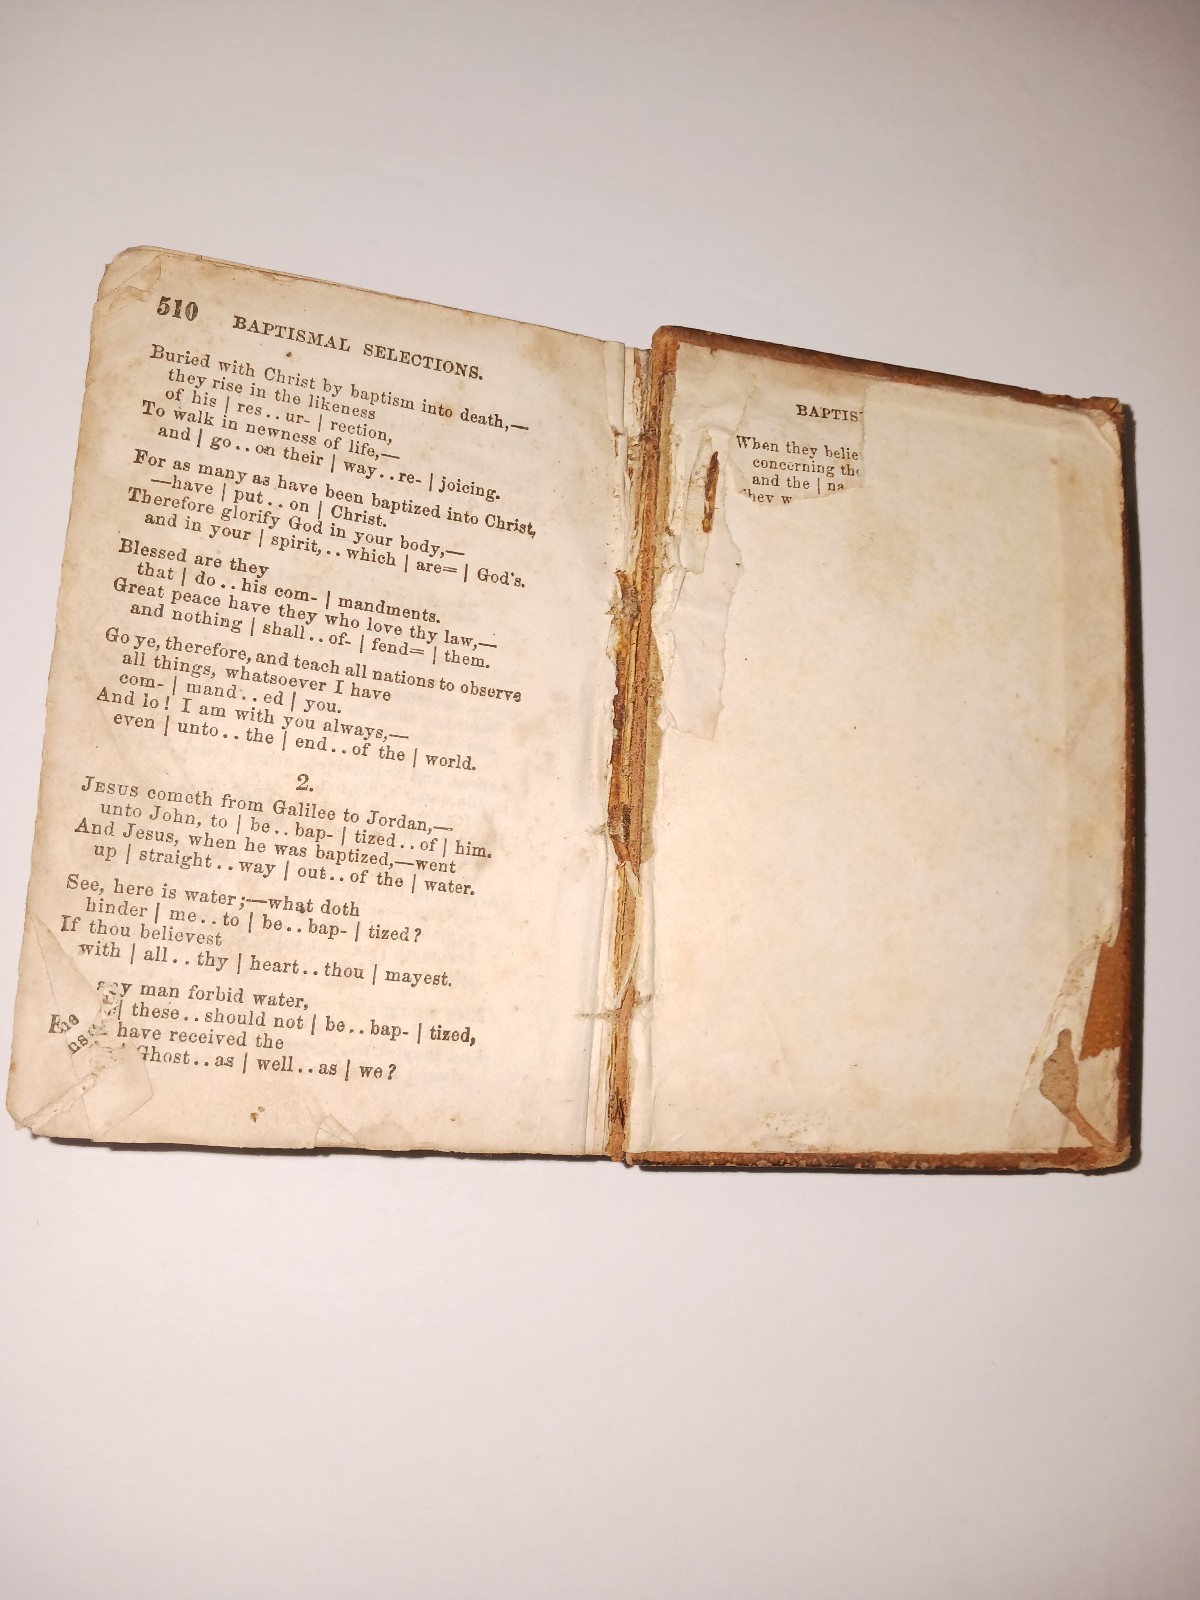 510 BAPTISMAL SELECTIONS.
Buried with Christ by baptism into death,—
they rise in the likeness
of his | res . . ur- | rection,
To walk in newness of life,—
and | go . . on their | way . . re- | joicing.
For as many as have been baptized into Christ,
—have | put . . on | Christ.
Therefore glorify God in your body,—
and in your | spirit, . . which | are= | God's.
Blessed are they
that | do . . his com- | mandments.
Great peace have they who love thy law,—
and nothing | shall . . of- | fend= | them.
Go ye, therefore, and teach all nations to observe
all things, whatsoever I have
com- | mand . . ed | you.
And lo! I am with you always,—
even | unto . . the | end . . of the | world.
2.
JESUS cometh from Galilee to Jordan,—
unto John, to | be . . bap- | tized . . of | him.
And Jesus, when he was baptized,—went
up | straight . . way | out . . of the | water.
See, here is water;—what doth
hinder | me . . to | be . . bap- | tized?
If thou believest
with | all . . thy | heart . . thou | mayest.
man forbid water,
| these . . should not | be . . bap- | tized,
have received the
Ghost . . as | well . . as | we?
BAPTIS
When they belie
concerning the
and the | na